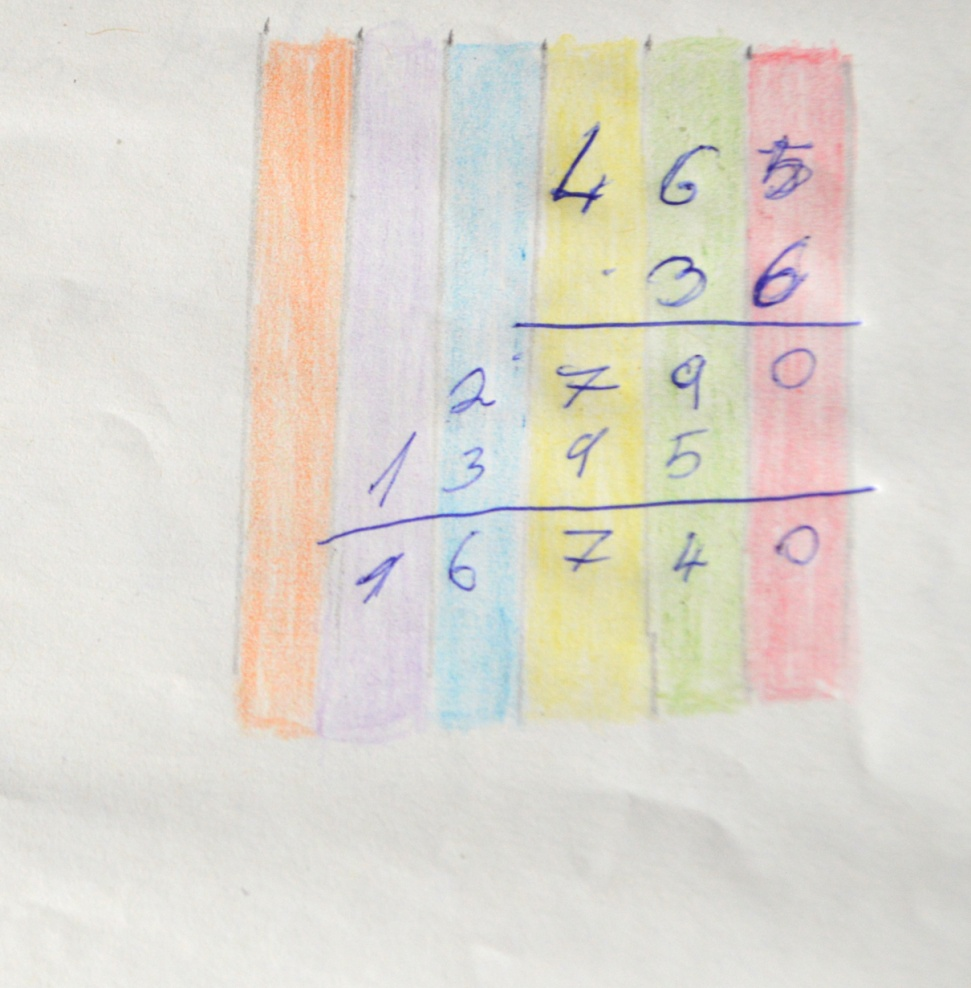 465
· 36
2790
1395
16740